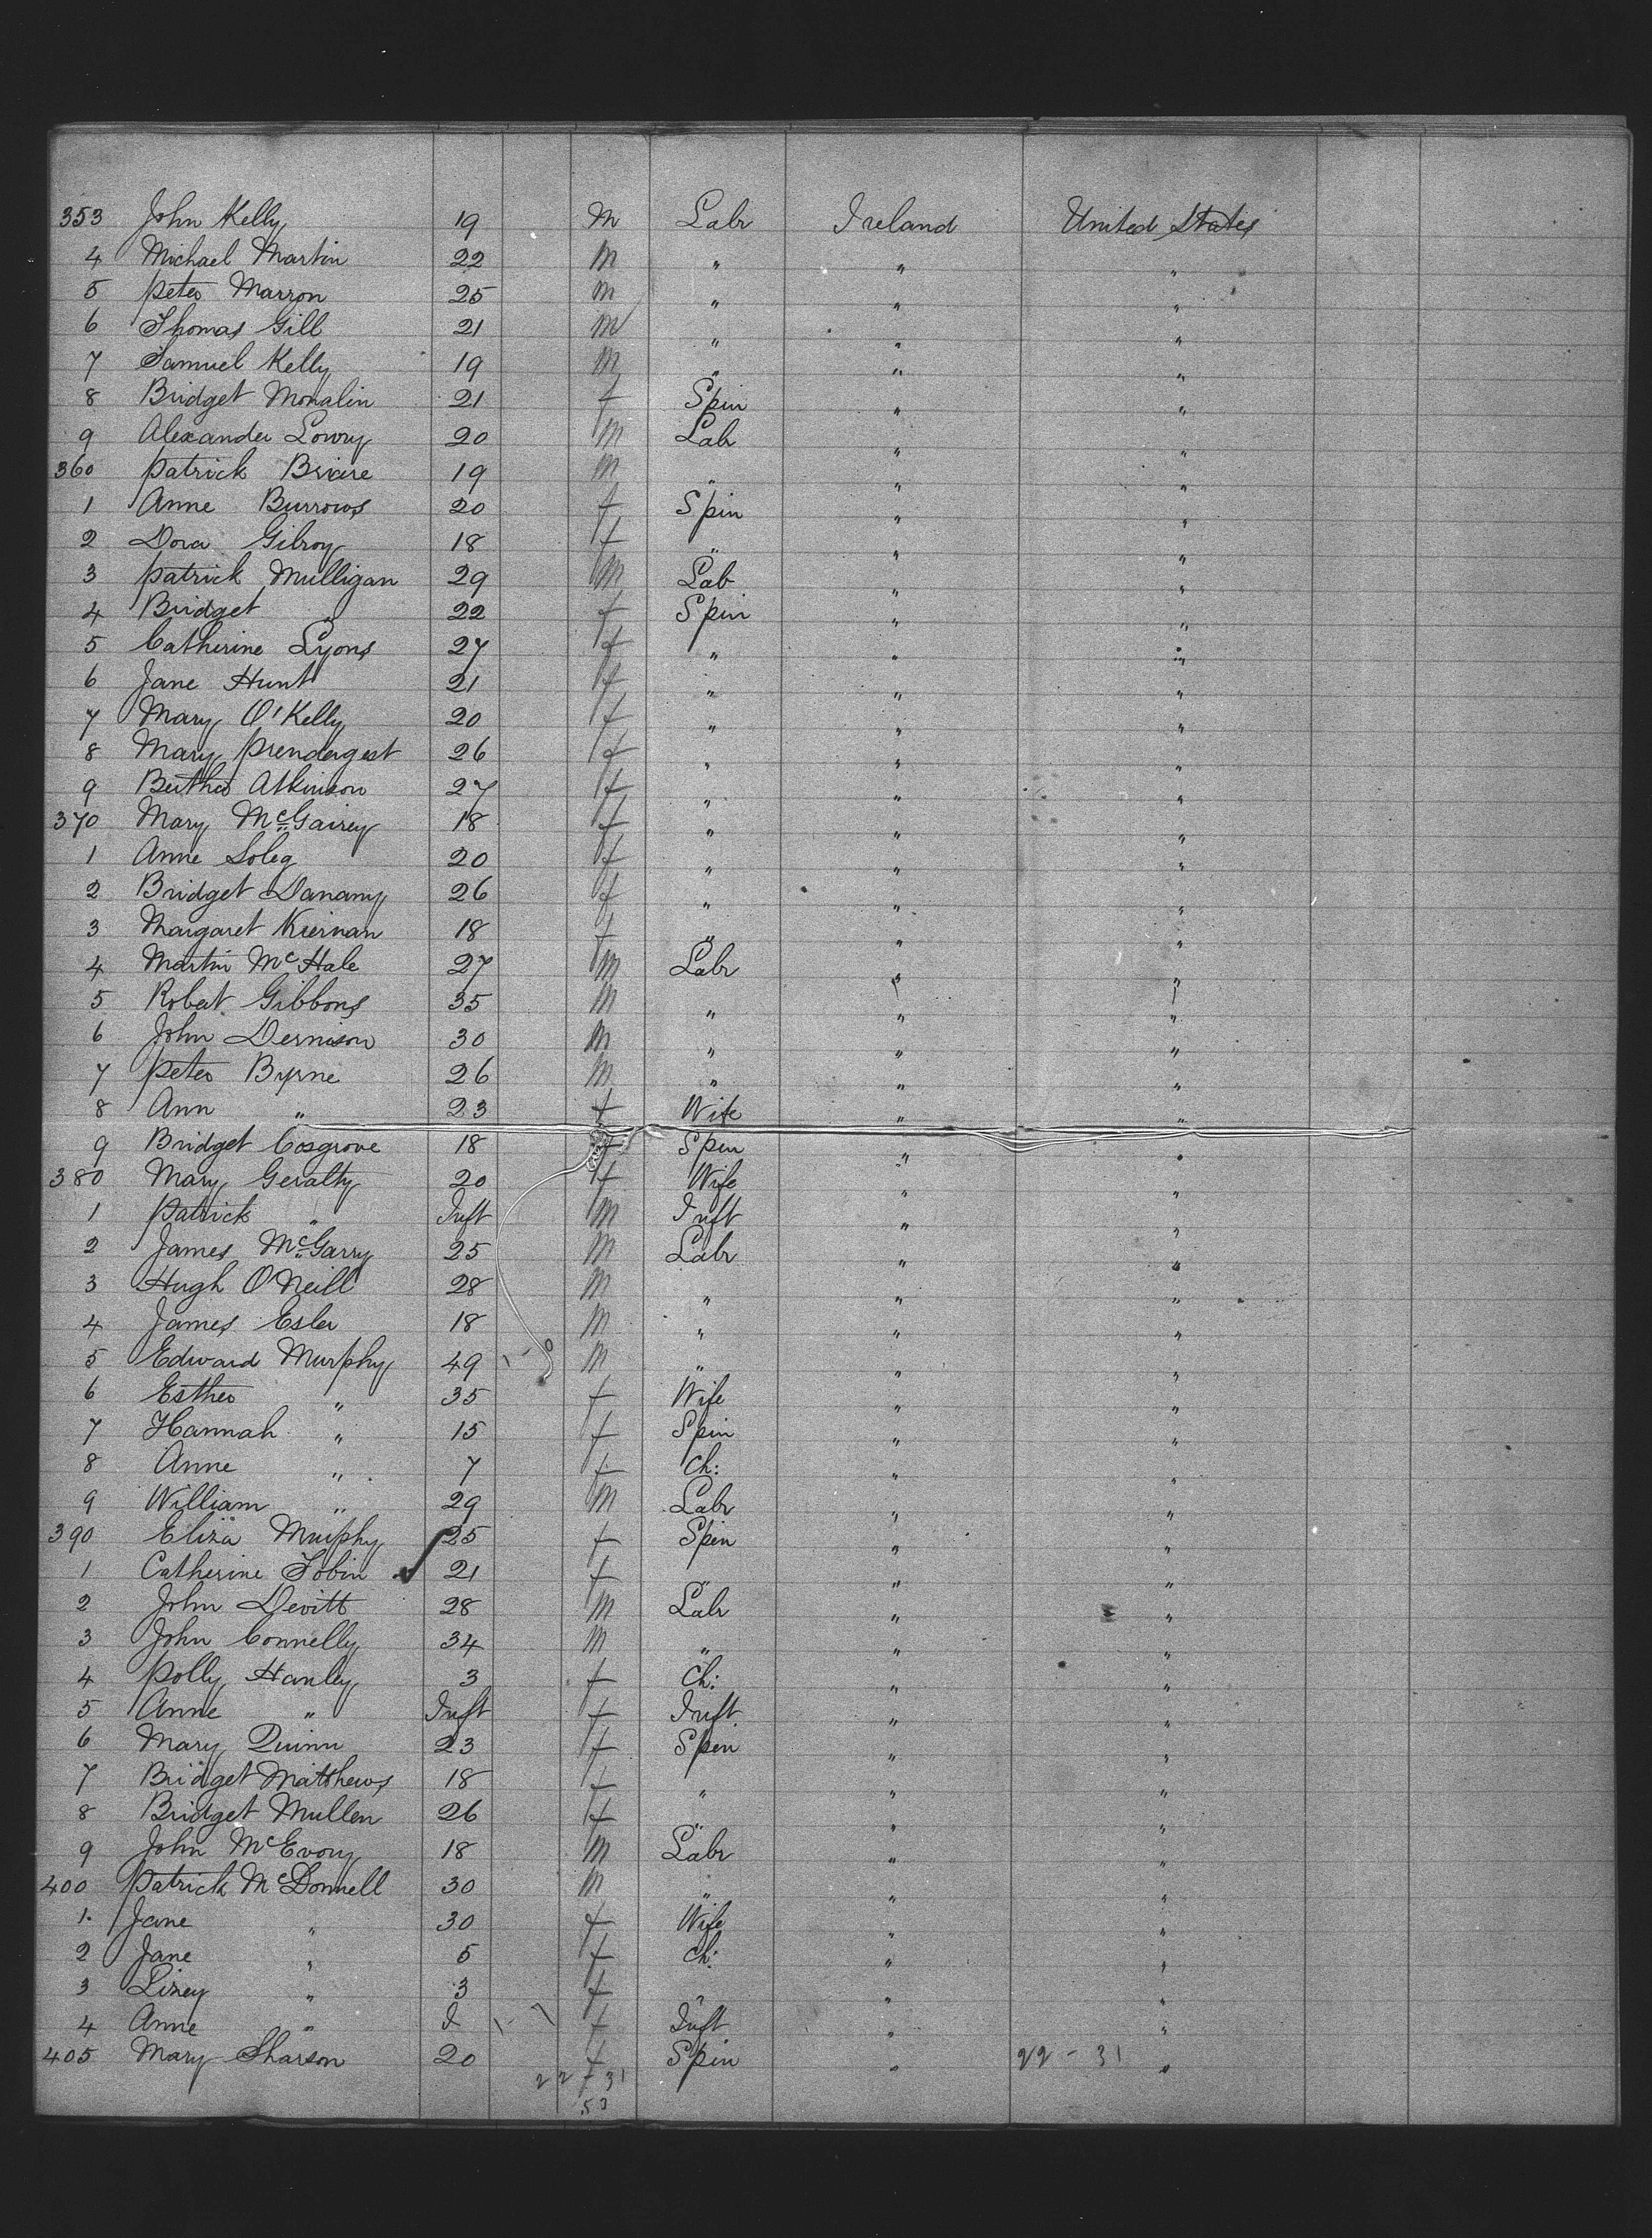 353 John Kelly 19 M Labr Ireland United States
4 Michael Martin 22 M " " "
5 Peter Marron 25 M " " "
6 Thomas Gill 21 M " " "
7 Samuel Kelly 19 M " " "
8 Bridget Monalin 21 f Spin " "
9 Alexander Lowry 20 M Labr " "
360 Patrick 19 M " " "
1 Anne Burrows 20 f Spin " "
2 Dora Gilroy 18 f " " "
3 Patrick Mulligan 29 M Lab " "
4 Bridget " 22 f Spin " "
5 Catherine Lyons 27 f " " "
6 Jane Hunt 21 f " " "
7 Mary O'Kelly 20 f " " "
8 Mary Prendergest 26 f " " "
9 Atkinson 27 f " " "
370 Mary McGairey 18 f " " "
1 Anne 20 f " " "
2 Bridget Danamy 26 f " " "
3 Margaret Kiernan 18 f " " "
4 Martin McHale 27 M Labr " "
5 Robert Gibbons 35 M " " "
6 John Dernison 30 M " " "
7 Peter Byrne 26 M " " "
8 Ann " 23 f Wife " "
9 Bridget Cosgrove 18 f Spin " "
380 Mary Geralty 20 f Wife " "
1 Patrick " Inft M Inft " "
2 James McGarry 25 M Labr " "
3 Hugh O'Neill 28 M " " "
4 James Esler 18 M " " "
5 Edward Murphy 49 1-0 M " " "
6 Esther " 35 f Wife " "
7 Hannah " 15 f Spin " "
8 Anne " 7 f Ch: " "
9 William " 29 M Labr " "
390 Eliza Murphy 25 f Spin " "
1 Catherine Tobin ✓ 21 f " " "
2 John Devitt 28 M Labr " "
3 John Connelly 34 M " " "
4 Polly Hanley 3 f Ch: " "
5 Anne " Inft f Inft " "
6 Mary Quinn 23 f Spin " "
7 Bridget Matthews 18 f " " "
8 Bridget Mullen 26 f " " "
9 John McEvoy 18 M Labr " "
400 Patrick McDonnell 30 M " " "
1. Jane " 30 f Wife " "
2 Jane " 5 f Ch: " "
3 Lizey " 3 f " " "
4 Anne " I 1-1 f Inft " "
405 Mary Sharson 20 f Spin " 22-31 "
22 31
53